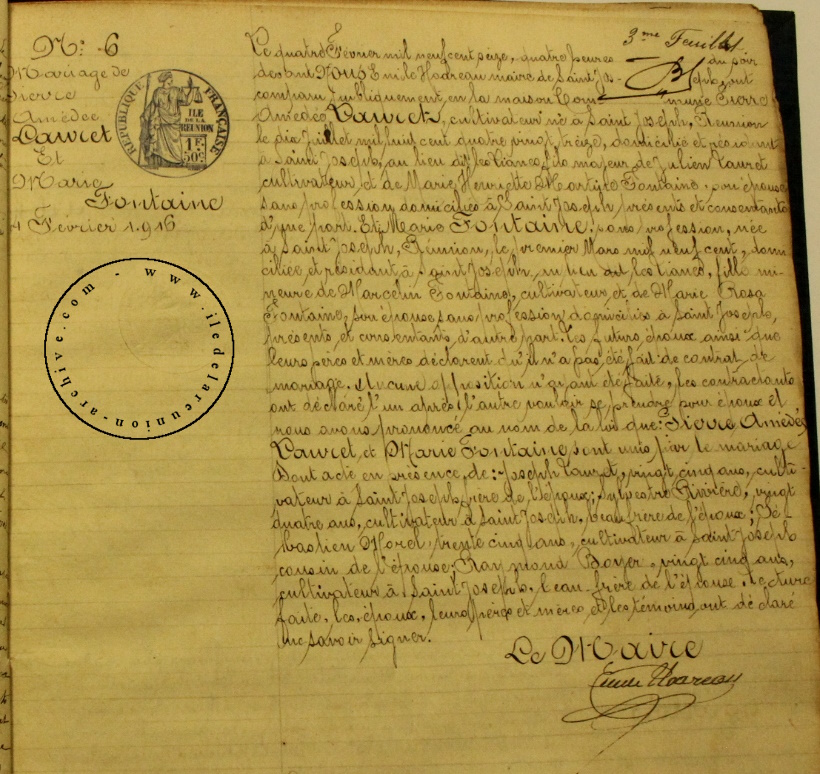 3me Feuillet.
N° 6
Mariage de
Pierre
Amédée
Lauret
Et
Marie
Fontaine
4 Février 1916
REPUBLIQUE FRANÇAISE
ILE
DE LA
REUNION
1F
50c
www.iledelareunion-archive.com
Le quatre Février mil neuf cent seize, quatre heures du soir
devant Nous Emile Hoareau maire de Saint Jos-eph, ont
comparu publiquement, en la maison Com-mune Pierre
Amédée Lauret, cultivateur né à Saint Joseph, Réunion
le dix Juillet mil huit cent quatre vingt treize, domicilié et résidant
à Saint Joseph, au lieu dit les Lianes, fils majeur de Julien Lauret
cultivateur et de Marie Henriette Fontaine, son épouse
sans profession domiciliés à Saint Joseph présents et consentants
d'une part. Et Marie Fontaine, sans profession, née
à Saint Joseph, Réunion, le premier Mars mil neuf cent, domi
ciliée et résidant à Saint Joseph, au lieu dit les Lianes, fille mi-
neure de Marcelin Fontaine, cultivateur et de Marie Rosa
Fontaine, son épouse sans profession domiciliés à Saint Joseph,
présents et consentants d'autre part. Les futurs époux ainsi que
leurs pères et mères déclarent qu'il n'a pas été fait de contrat de
mariage. Aucune opposition n'ayant été faite, les contractants
ont déclaré l'un après l'autre vouloir se prendre pour époux et
nous avons prononcé au nom de la loi que: Pierre Amédée
Lauret et Marie Fontaine sont unis par le mariage
Dont acte en présence de: Joseph Lauret, vingt cinq ans, culti-
vateur à Saint Joseph, frère de l'époux; Sylvestre Rivière, vingt
quatre ans, cultivateur à Saint Joseph, beau frère de l'époux; Sé-
bastien Morel, trente cinq ans, cultivateur à Saint Joseph
cousin de l'épouse; Raymond Boyer, vingt cinq ans,
cultivateur à Saint Joseph, beau-frère de l'épouse. Lecture
faite, les époux, leurs pères et mères et les témoins ont déclaré
ne savoir signer.
Le Maire
Emile Hoareau